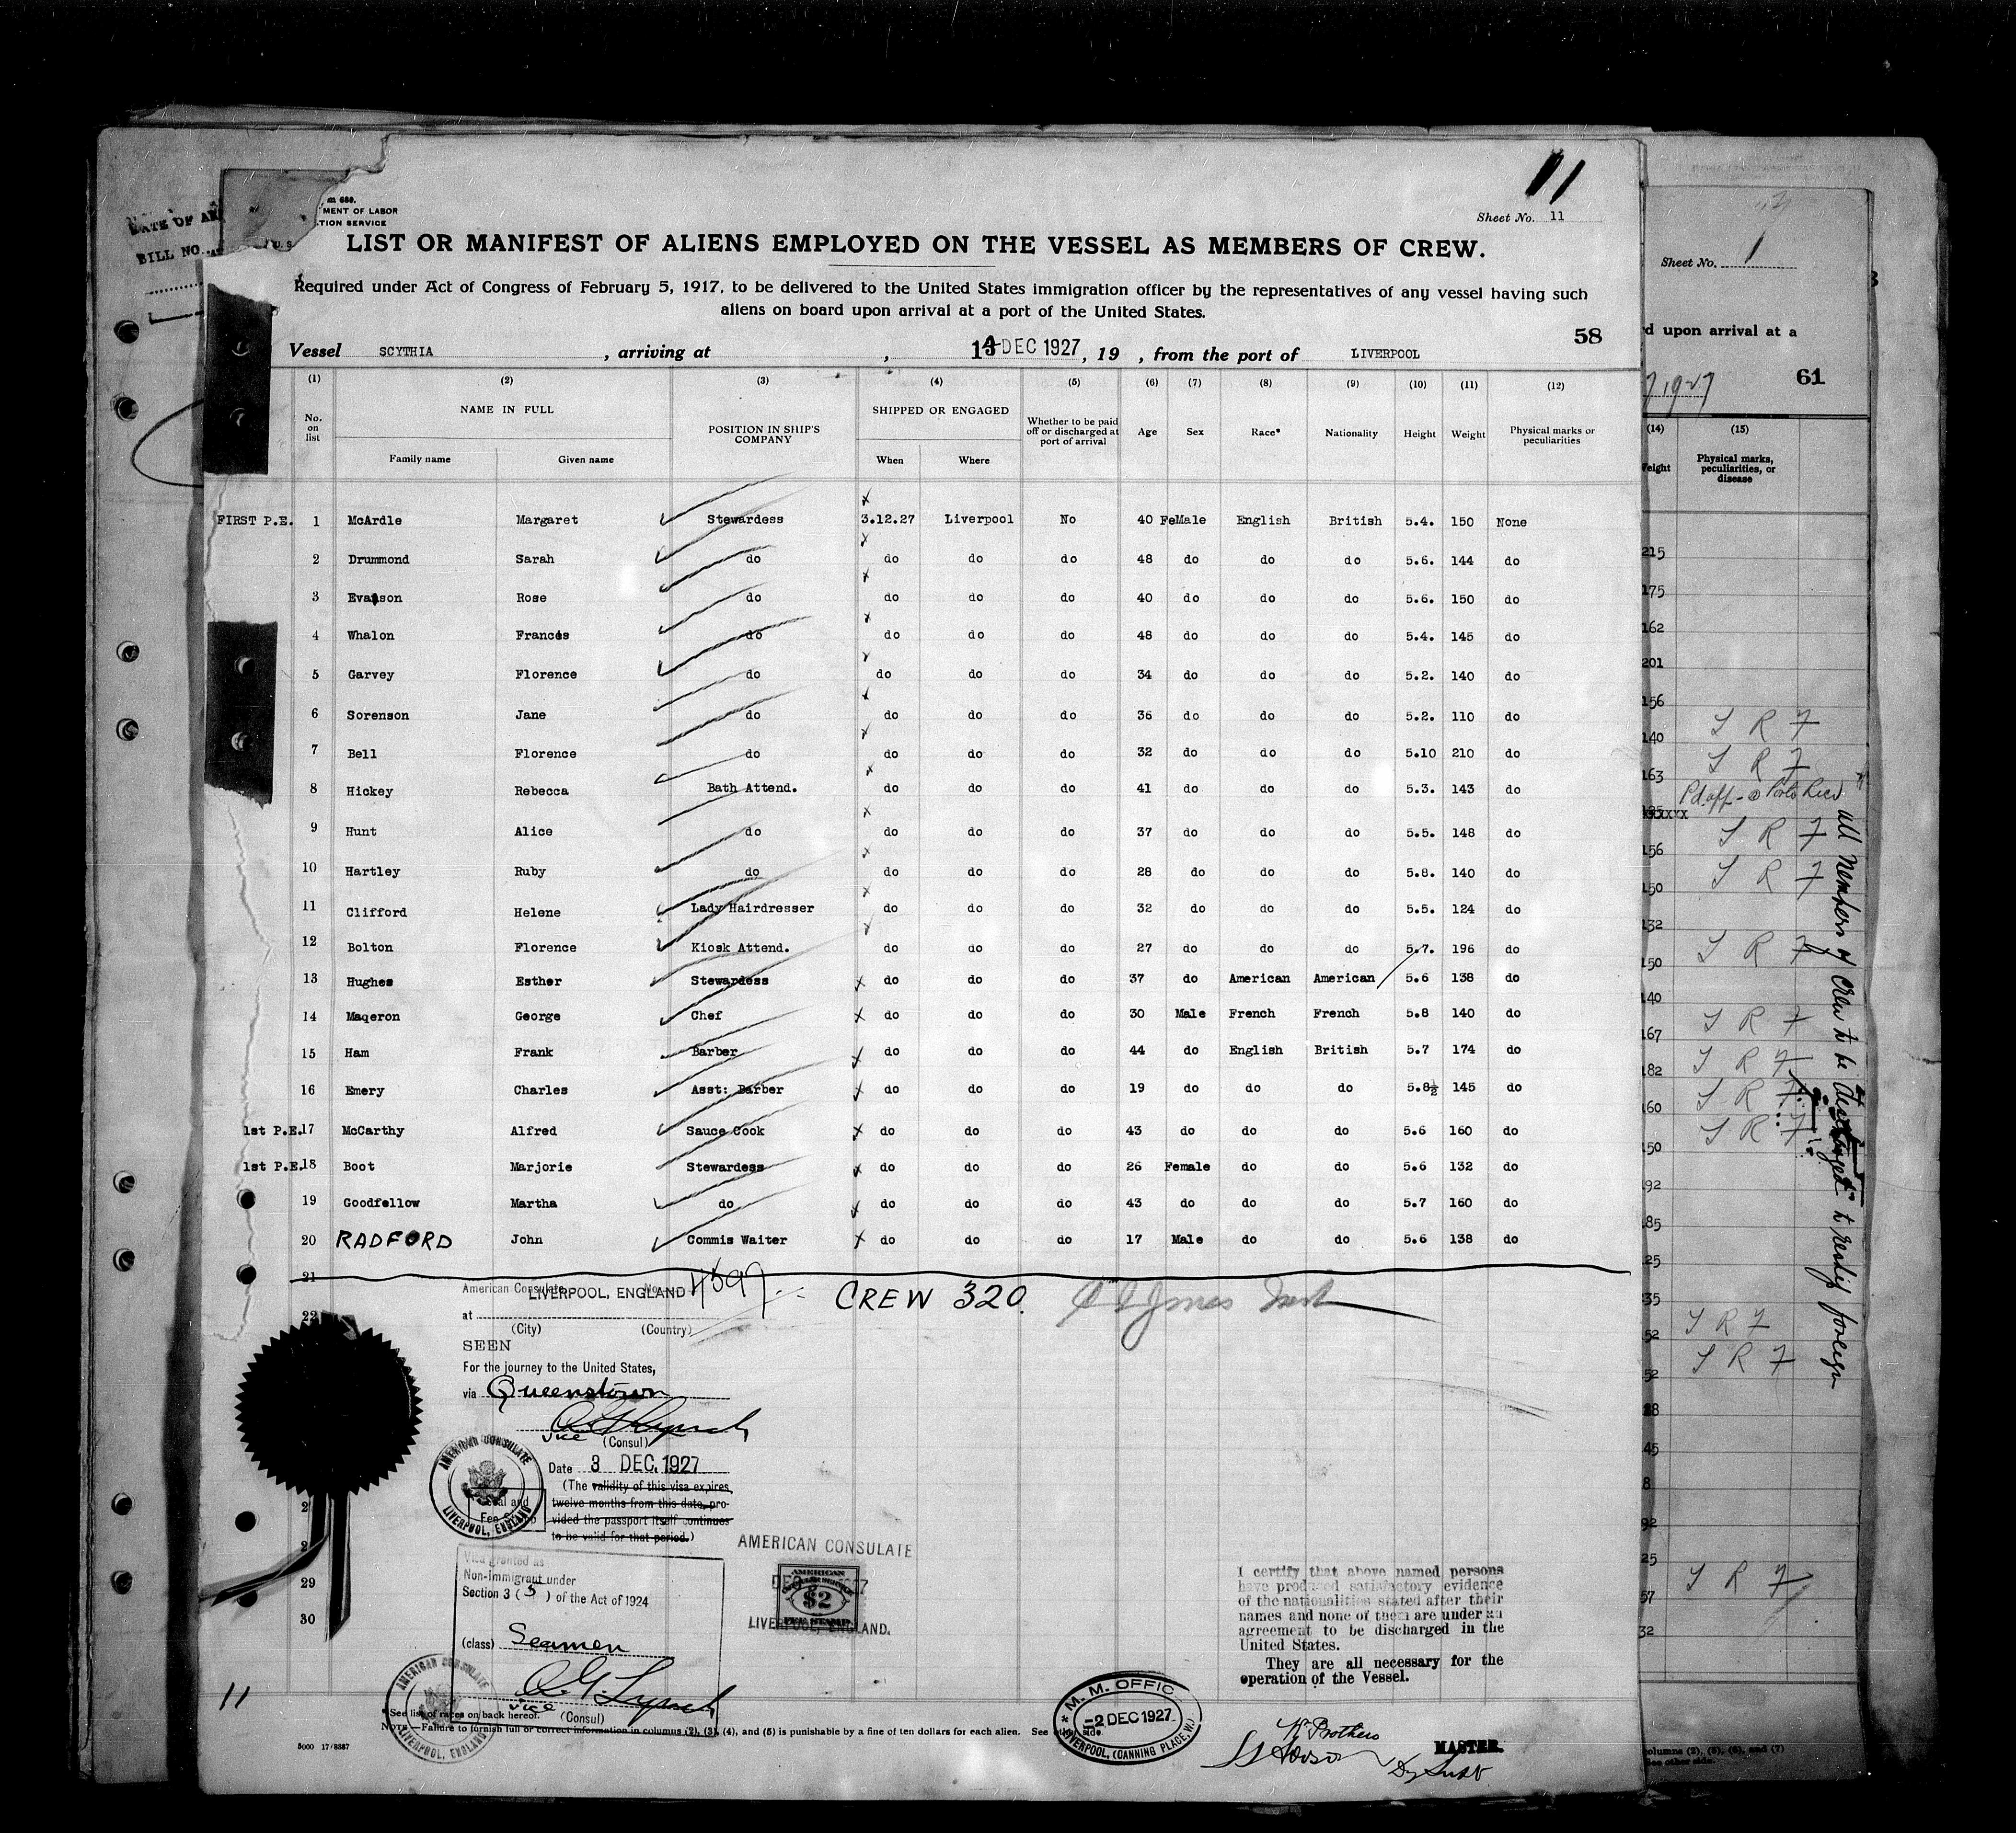 11
m 689.
MENT OF LABOR
TION SERVICE
Sheet No. 11
DATE OF AR
BILL NO.
LIST OR MANIFEST OF ALIENS EMPLOYED ON THE VESSEL AS MEMBERS OF CREW.
Required under Act of Congress of February 5, 1917, to be delivered to the United States immigration officer by the representatives of any vessel having such
aliens on board upon arrival at a port of the United States.
58
Vessel SCYTHIA , arriving at , DEC 1927, 19 , from the port of LIVERPOOL
(1) (2) (3) (4) (5) (6) (7) (8) (9) (10) (11) (12)
No. on list NAME IN FULL POSITION IN SHIP'S COMPANY SHIPPED OR ENGAGED Whether to be paid off or discharged at port of arrival Age Sex Race* Nationality Height Weight Physical marks or peculiarities
Family name Given name When Where
FIRST P.E. 1 McArdle Margaret Stewardess 3.12.27 Liverpool No 40 FeMale English British 5.4. 150 None
2 Drummond Sarah do do do do 48 do do do 5.6. 144 do
3 Evanson Rose do do do do 40 do do do 5.6. 150 do
4 Whalon Frances do do do do 48 do do do 5.4. 145 do
5 Garvey Florence do do do do 34 do do do 5.2. 140 do
6 Sorenson Jane do do do do 36 do do do 5.2. 110 do
7 Bell Florence do do do do 32 do do do 5.10 210 do
8 Hickey Rebecca Bath Attend. do do do 41 do do do 5.3. 143 do
9 Hunt Alice do do do do 37 do do do 5.5. 148 do
10 Hartley Ruby do do do do 28 do do do 5.8. 140 do
11 Clifford Helene Lady Hairdresser do do do 32 do do do 5.5. 124 do
12 Bolton Florence Kiosk Attend. do do do 27 do do do 5.7. 196 do
13 Hughes Esther Stewardess do do do 37 do American American 5.6 138 do
14 Maqeron George Chef do do do 30 Male French French 5.8 140 do
15 Ham Frank Barber do do do 44 do English British 5.7 174 do
16 Emery Charles Asst: Barber do do do 19 do do do 5.8½ 145 do
1st P.E. 17 McCarthy Alfred Sauce Cook do do do 43 do do do 5.6 160 do
1st P.E. 18 Boot Marjorie Stewardess do do do 26 Female do do 5.6 132 do
19 Goodfellow Martha do do do do 43 do do do 5.7 160 do
20 RADFORD John Commis Waiter do do do 17 Male do do 5.6 138 do
21
22
29
30
American Consulate No. 4597
LIVERPOOL, ENGLAND
at
(City) (Country)
CREW 320.
SEEN
For the journey to the United States,
via Queenstown
Vice (Consul)
Date 3 DEC. 1927
(The validity of this visa expires
twelve months from this date, pro-
vided the passport itself continues
to be valid for that period.)
AMERICAN CONSULATE
LIVERPOOL, ENGLAND
Seal and
Fee
Visa granted as
Non-Immigrant under
Section 3 (5) of the Act of 1924
(class) Seamen
A. G. Lynch
Vice (Consul)
AMERICAN CONSULATE
LIVERPOOL, ENGLAND.
AMERICAN
$2
FEE STAMP
AMERICAN CONSULATE
LIVERPOOL, ENGLAND
I certify that above named persons
have produced satisfactory evidence
of the nationalities stated after their
names and none of them are under an
agreement to be discharged in the
United States.
They are all necessary for the
operation of the Vessel.
M. M. OFFICE
2 DEC 1927
LIVERPOOL, (CANNING PLACE, W.)
MASTER.
11
* See list of races on back hereof.
NOTE.—Failure to furnish full or correct information in columns (2), (3), (4), and (5) is punishable by a fine of ten dollars for each alien. See other side.
5000 17/8387
Sheet No. 1
d upon arrival at a
1927
61
(14) (15)
Weight Physical marks, peculiarities, or disease
215
175
162
201
156
140
163
156
150
132
150
140
167
182
160
150
92
85
25
35
52
52
45
92
25
57
32
S R F
S R F
S R F
S R F
S R F
S R F
S R F
S R F
S R F
S R F
S R F
S R F
all members of crew to be
foreign
columns (2), (5), (6), and (7)
See other side.